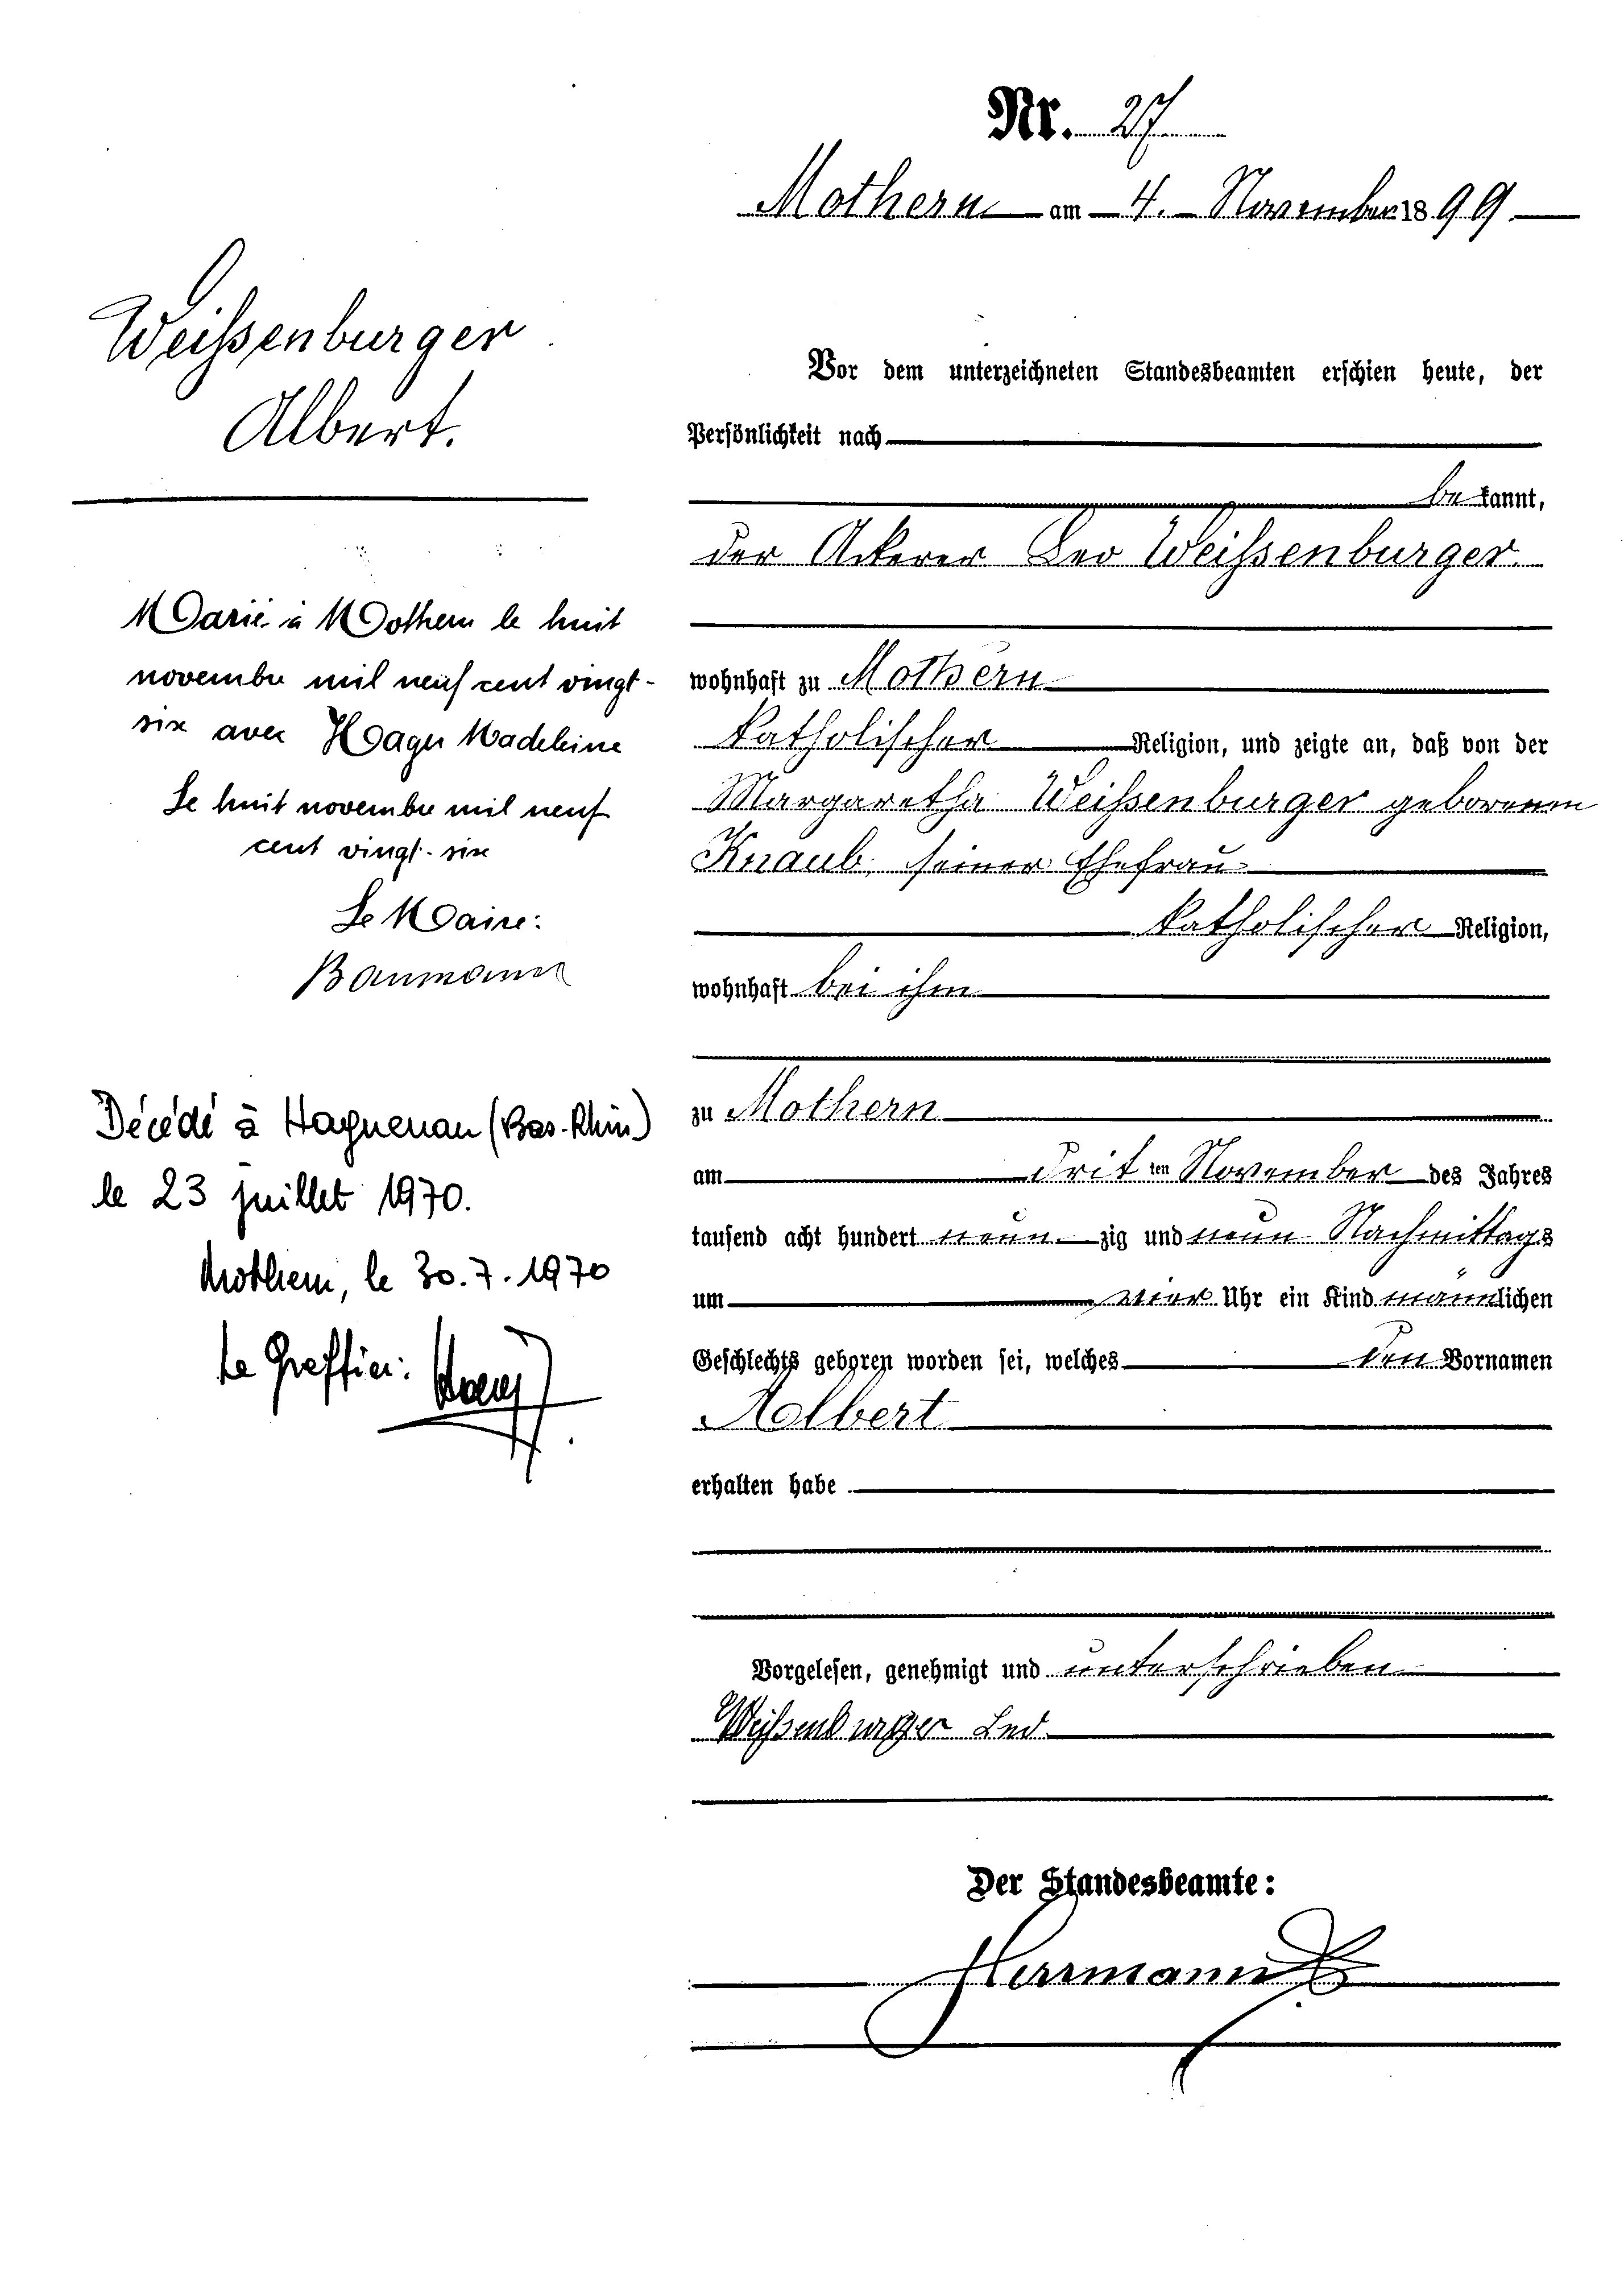 Nr. 27
Mothern am 4. November 1899
Weißenburger
Albert.
Vor dem unterzeichneten Standesbeamten erschien heute, der
Persönlichkeit nach
bekannt,
der Ackerer Leo Weißenburger
wohnhaft zu Mothern
katholischer Religion, und zeigte an, daß von der
Margaretha Weißenburger geborenen
Knaub, seiner Ehefrau
katholischer Religion,
wohnhaft bei ihm
zu Mothern
am dritten November des Jahres
tausend acht hundert neunzig und neun Nachmittags
um vier Uhr ein Kind männlichen
Geschlechts geboren worden sei, welches den Vornamen
Albert
erhalten habe
Vorgelesen, genehmigt und unterschrieben
Weißenburger Leo
Der Standesbeamte:
Herrmann
Marié à Mothern le huit
novembre mil neuf cent vingt-
six avec Hager Madeleine
Le huit novembre mil neuf
cent vingt-six
Le Maire:
Baumann
Décédé à Haguenau (Bas-Rhin)
le 23 juillet 1970.
Mothern, le 30.7.1970
Le Greffier: